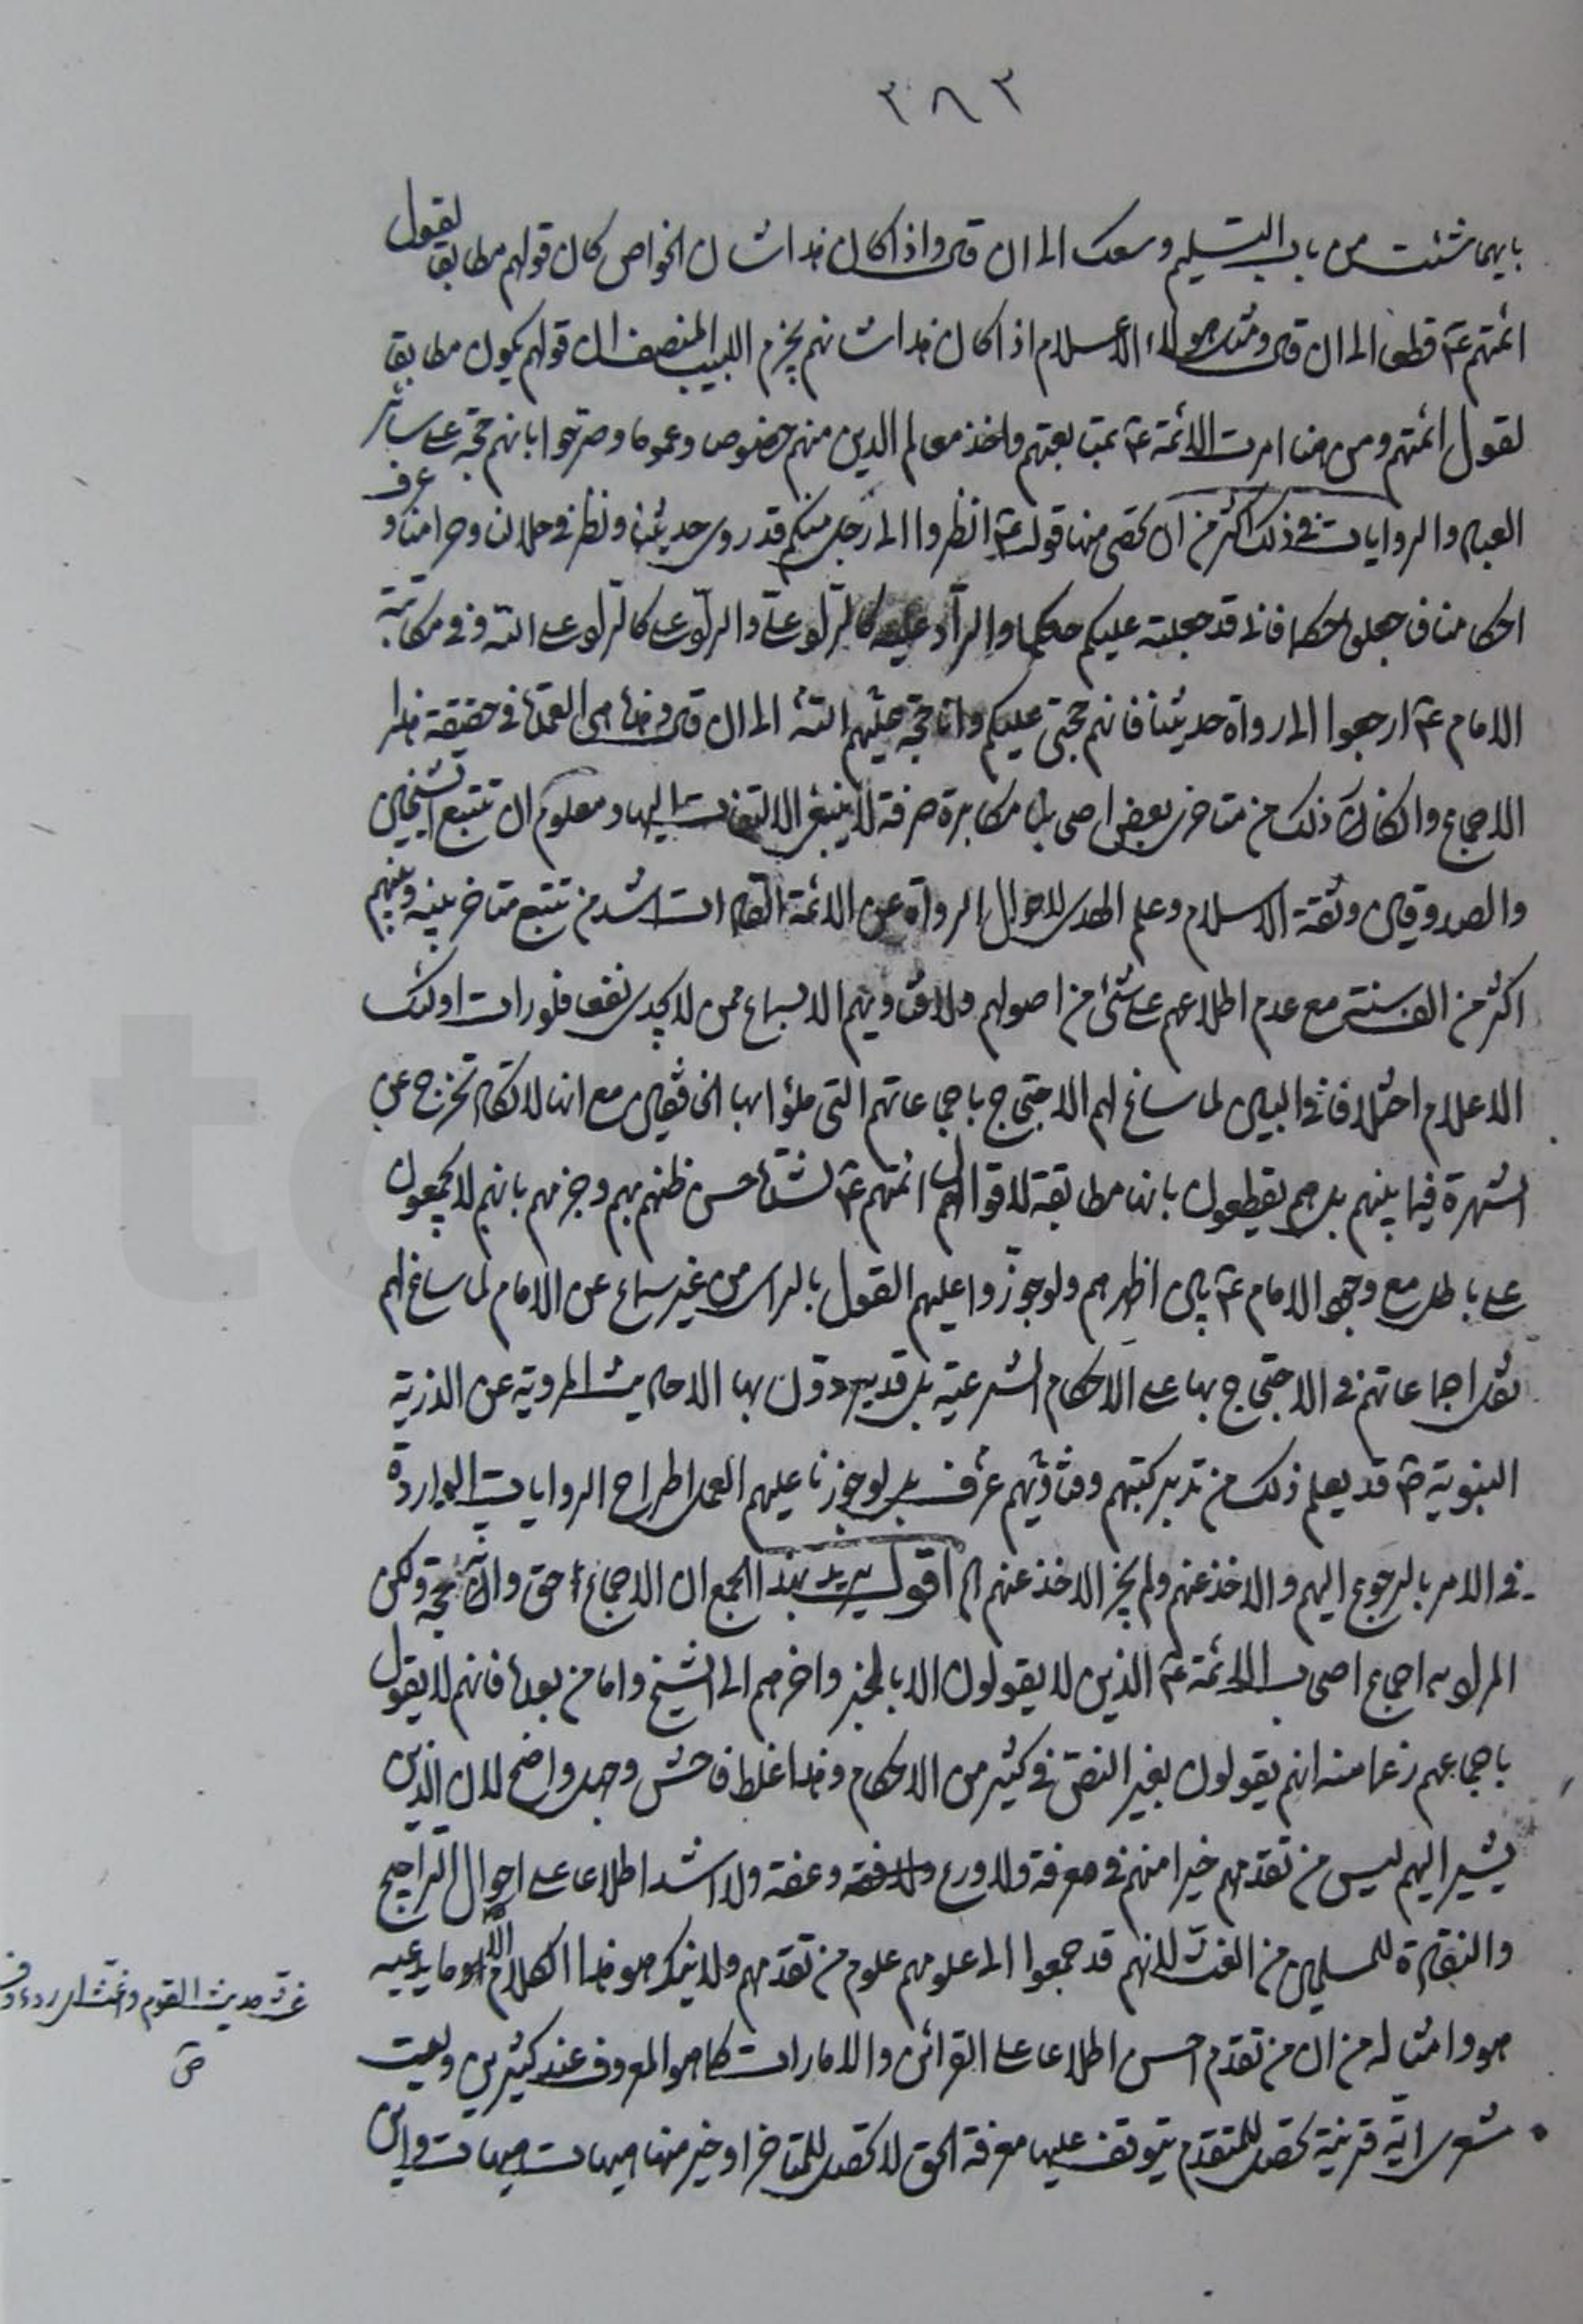 ٣٨٣
بايهما شئت من باب التسليم وسعك الى ان قال واذا كان هذا شان الخواص كان قولهم مطابقا لقول
ائمتهم ع قطعا الى ان قال ومثل هؤلاء الاعلام اذا كان هذا شانهم يجزم اللبيب المنصف ان قولهم يكون مطابقا
لقول ائمتهم ومن هنا امرت الائمة ع بمتابعتهم واخذ معالم الدين منهم خصوص وعموما وصرحوا بانهم حجة على سائر
العباد والروايات في ذلك اكثر من ان تحصى منها قوله ع انظروا الى رجل منكم قد روى حديثنا ونظر في حلالنا وحرامنا وعرف
احكامنا فاجعلوه حكما فانى قد جعلته عليكم حكما والراد عليه كالراد علىّ والراد على كالراد على الله وفي مكاتبة
الامام ع ارجعوا الى رواة حديثنا فانهم حجتى عليكم وانا حجة الله الى ان قال وهذا هى العمدة في حقيقة هذا
الاجماع وانكار ذلك من متاخرى بعض اصحابنا مكابرة صرفة لا ينبغى الالتفات اليها ومعلوم ان تتبع الشيخين
والصدوقين وثقة الاسلام وعلم الهدى لاحوال الرواة عن الائمة الهداة اشد من تتبع متاخر بينه وبينهم
اكثر من الف سنة مع عدم اطلاعهم على شئ من اصولهم ولا فتاويهم الا سماع ممن لا يجدى نفعا فلو رات اولئك
الاعلام اختلافا في البين لما ساغ لهم الاحتجاج باجماعاتهم التى ملؤا بها الخافقين مع انها لا تكاد تخرج عن
الشهرة فيما بينهم بل هم يقطعون بانها مطابقة لاقوال ائمتهم ع لشدة حسن ظنهم بهم وجزمهم بانهم لا يجمعون
على باطل مع وجود الامام ع بين اظهرهم ولو جوزوا عليهم القول بالراى من غير سماع عن الامام لما ساغ لهم
نقل اجماعاتهم في الاحتجاج بها على الاحكام الشرعية بل قد يردون بها الاحاديث المروية عن الذرية
النبوية ص قد يعلم ذلك من تدبر كتبهم وفتاويهم عرف بل لو جوزنا عليهم العمل اطراح الروايات الواردة
في الامر بالرجوع اليهم والاخذ عنهم ولم يجز الاخذ عنهم الخ اقول يريد بهذا الجمع ان الاجماع حق وانه حجة ولكن
المراد به اجماع اصحاب الائمة ع الذين لا يقولون الا بالخبر واخرهم الى الشيخ واما من بعده فانهم لا يقول
باجماعهم زعما منه انهم يقولون بغير النص في كثير من الاحكام وهذا غلط فاحش وجهل واضح لان الذين
يشير اليهم ليس من تقدمهم خيرا منهم في معرفة ولا ورع ولا فقه وعفة ولا اشد اطلاعا على احوال التراجيح
والنقادة للسليم من الغث لانهم قد جمعوا الى علومهم علوم من تقدمهم ولا ينكر هو هذا الكلام الا ما يدعيه
هو وامثاله من ان من تقدم احسن اطلاعا على القرائن والامارات كما هو المعروف عند كثيرين وليت
شعرى اية قرينة تحصل للمتقدم يتوقف عليها معرفة الحق لا تحصل للمتاخر او خير منها هيهات هيهات واين
غث حديث القوم واغث اى ردء وف
ص